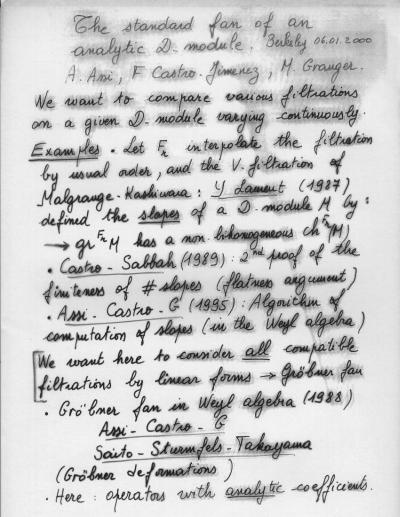 The standard fan of an
analytic D-module. Berkeley 06.01.2000
A. Assi, F Castro-Jimenez, M. Granger.
We want to compare various filtrations
on a given D-module varying continuously.
Examples • Let Fr interpolate the filtration
by usual order, and the V-filtration of
Malgrange-Kashiwara: Y Laurent (1987)
defined the slopes of a D-module M by:
→ gr^Fr M has a non bihomogeneous ch^Fr(M)
• Castro-Sabbah (1989): 2nd proof of the
finiteness of # slopes (flatness argument)
• Assi-Castro-G (1995): Algorithm of
computation of slopes (in the Weyl algebra)
[We want here to consider all compatible
filtrations by linear forms → Gröbner fan
• Gröbner fan in Weyl algebra (1988)
Assi-Castro-G
Saito-Sturmfels-Takayama
(Gröbner deformations)
• Here: operators with analytic coefficients.